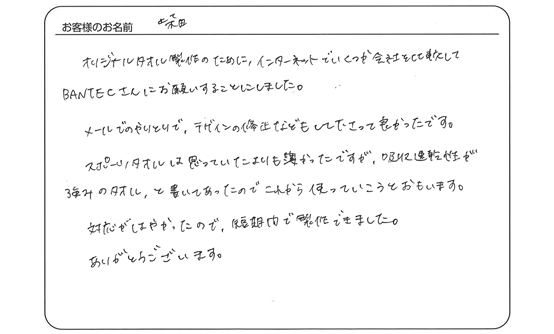 お客様のお名前 柴田
オリジナルタオル製作のために、インターネットでいくつか会社を比較して
BANTECさんにお願いすることにしました。
メールでのやりとりで、デザインの修正などもして下さって良かったです。
スポーツタオルは思っていたよりも薄かったですが、吸収速乾性が
強みのタオル、と書いてあったのでこれから使っていこうとおもいます。
対応がはやかったので、短期間で製作できました。
ありがとうございます。